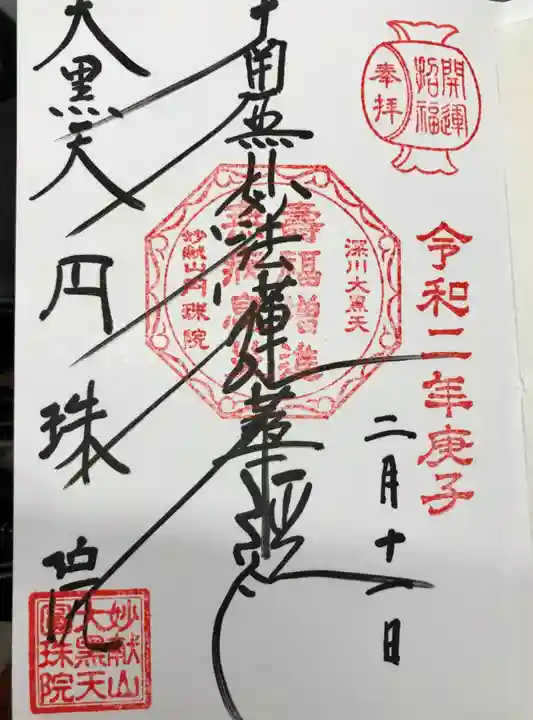 奉拝
開運
招福
令和二年庚子
二月十一日
南無妙法蓮華経
深川大黒天
壽福増進
妙献山円珠院
大黒天
円珠院
妙献山
大黒天
圓珠院